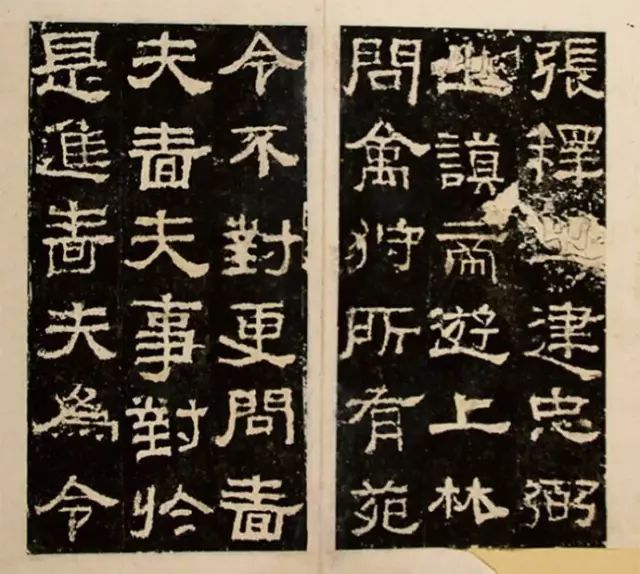 張釋之建忠弼
之謨帝遊上林
問禽狩所有苑
令不對更問嗇
夫嗇夫事對於
是進嗇夫為令